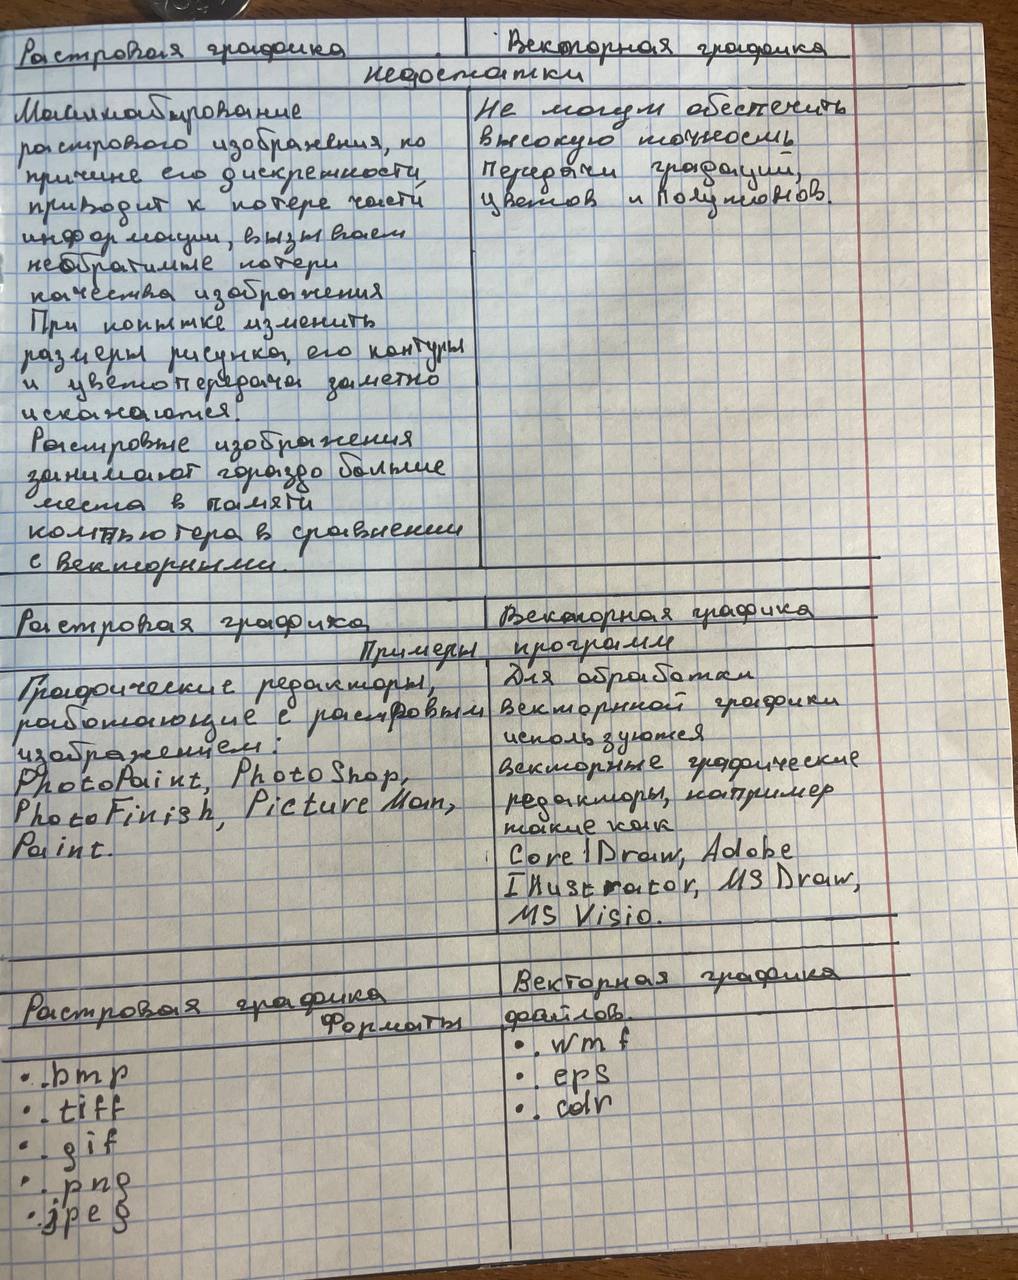 Растровая графика Векторная графика
недостатки
Масштабирование
растрового изображения, по
причине его дискретности,
приводит к потере части
информации, вызывает
необратимые потери
качества изображения
При попытке изменить
размеры рисунка, его контуры
и цветопередача заметно
искажаются.
Растровые изображения
занимают гораздо больше
места в памяти
компьютера в сравнении
с векторными.
Не могут обеспечить
высокую точность
передачи градаций,
цветов и полутонов.
Растровая графика Векторная графика
Примеры программ
Графические редакторы,
работающие с растровым
изображением:
PhotoPaint, PhotoShop,
PhotoFinish, Picture Man,
Paint.
Для обработки
векторнной графики
используются
векторные графические
редакторы, например
такие как
CorelDraw, Adobe
Illustrator, MS Draw,
MS Visio.
Растровая графика Векторная графика
Форматы файлов.
• .bmp
• .tiff
• .gif
• .png
• .jpeg
• .wmf
• .eps
• .cdr